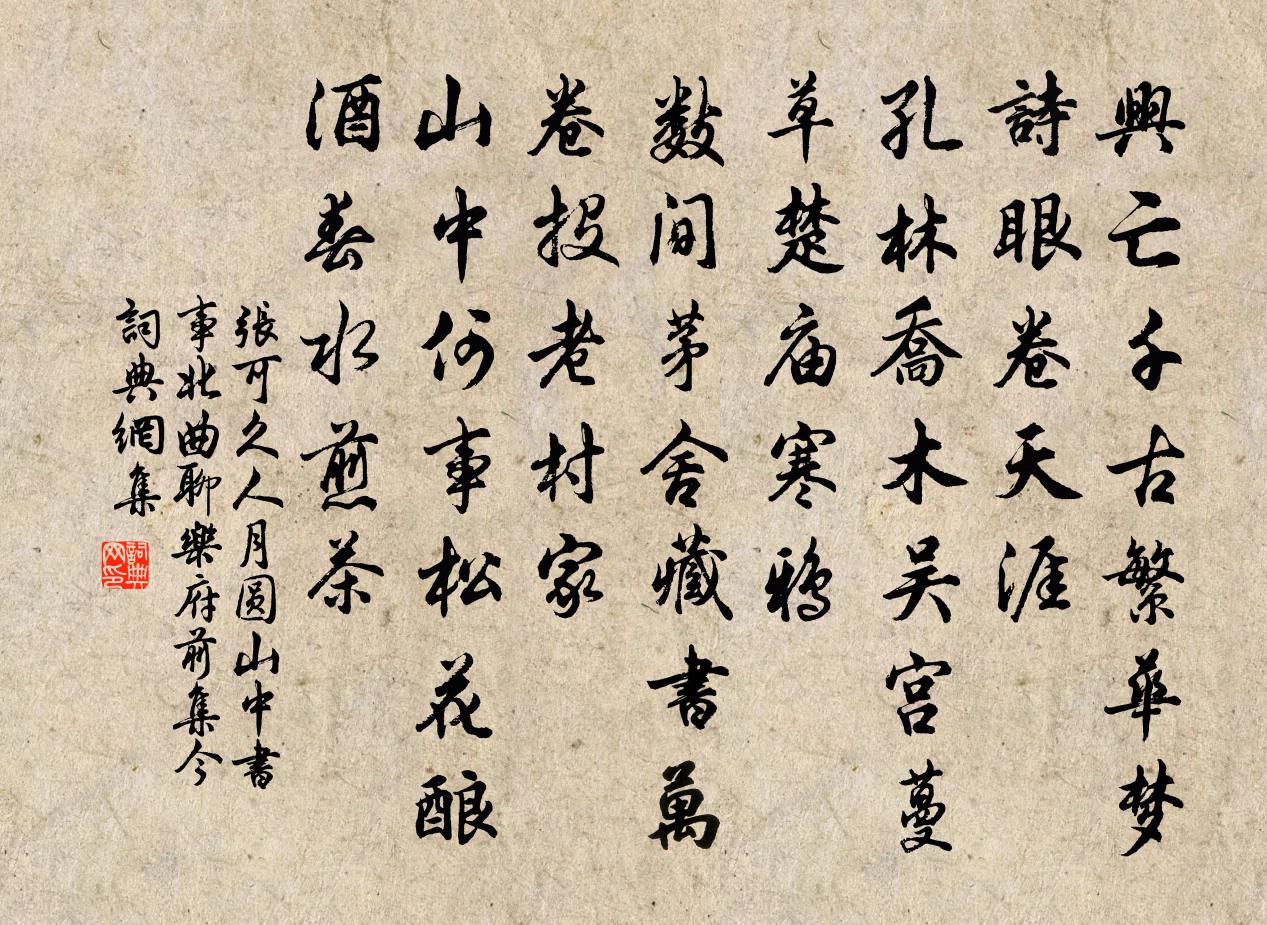 興亡千古繁華梦
詩眼卷天涯
孔林喬木吴宫蔓
草楚庙寒鸦
数间茅舍藏書萬
卷投老村家
山中何事松花酿
酒春水煎茶
張可久人月圆山中書
事北曲聊樂府前集今
詞典網集
詞典网印